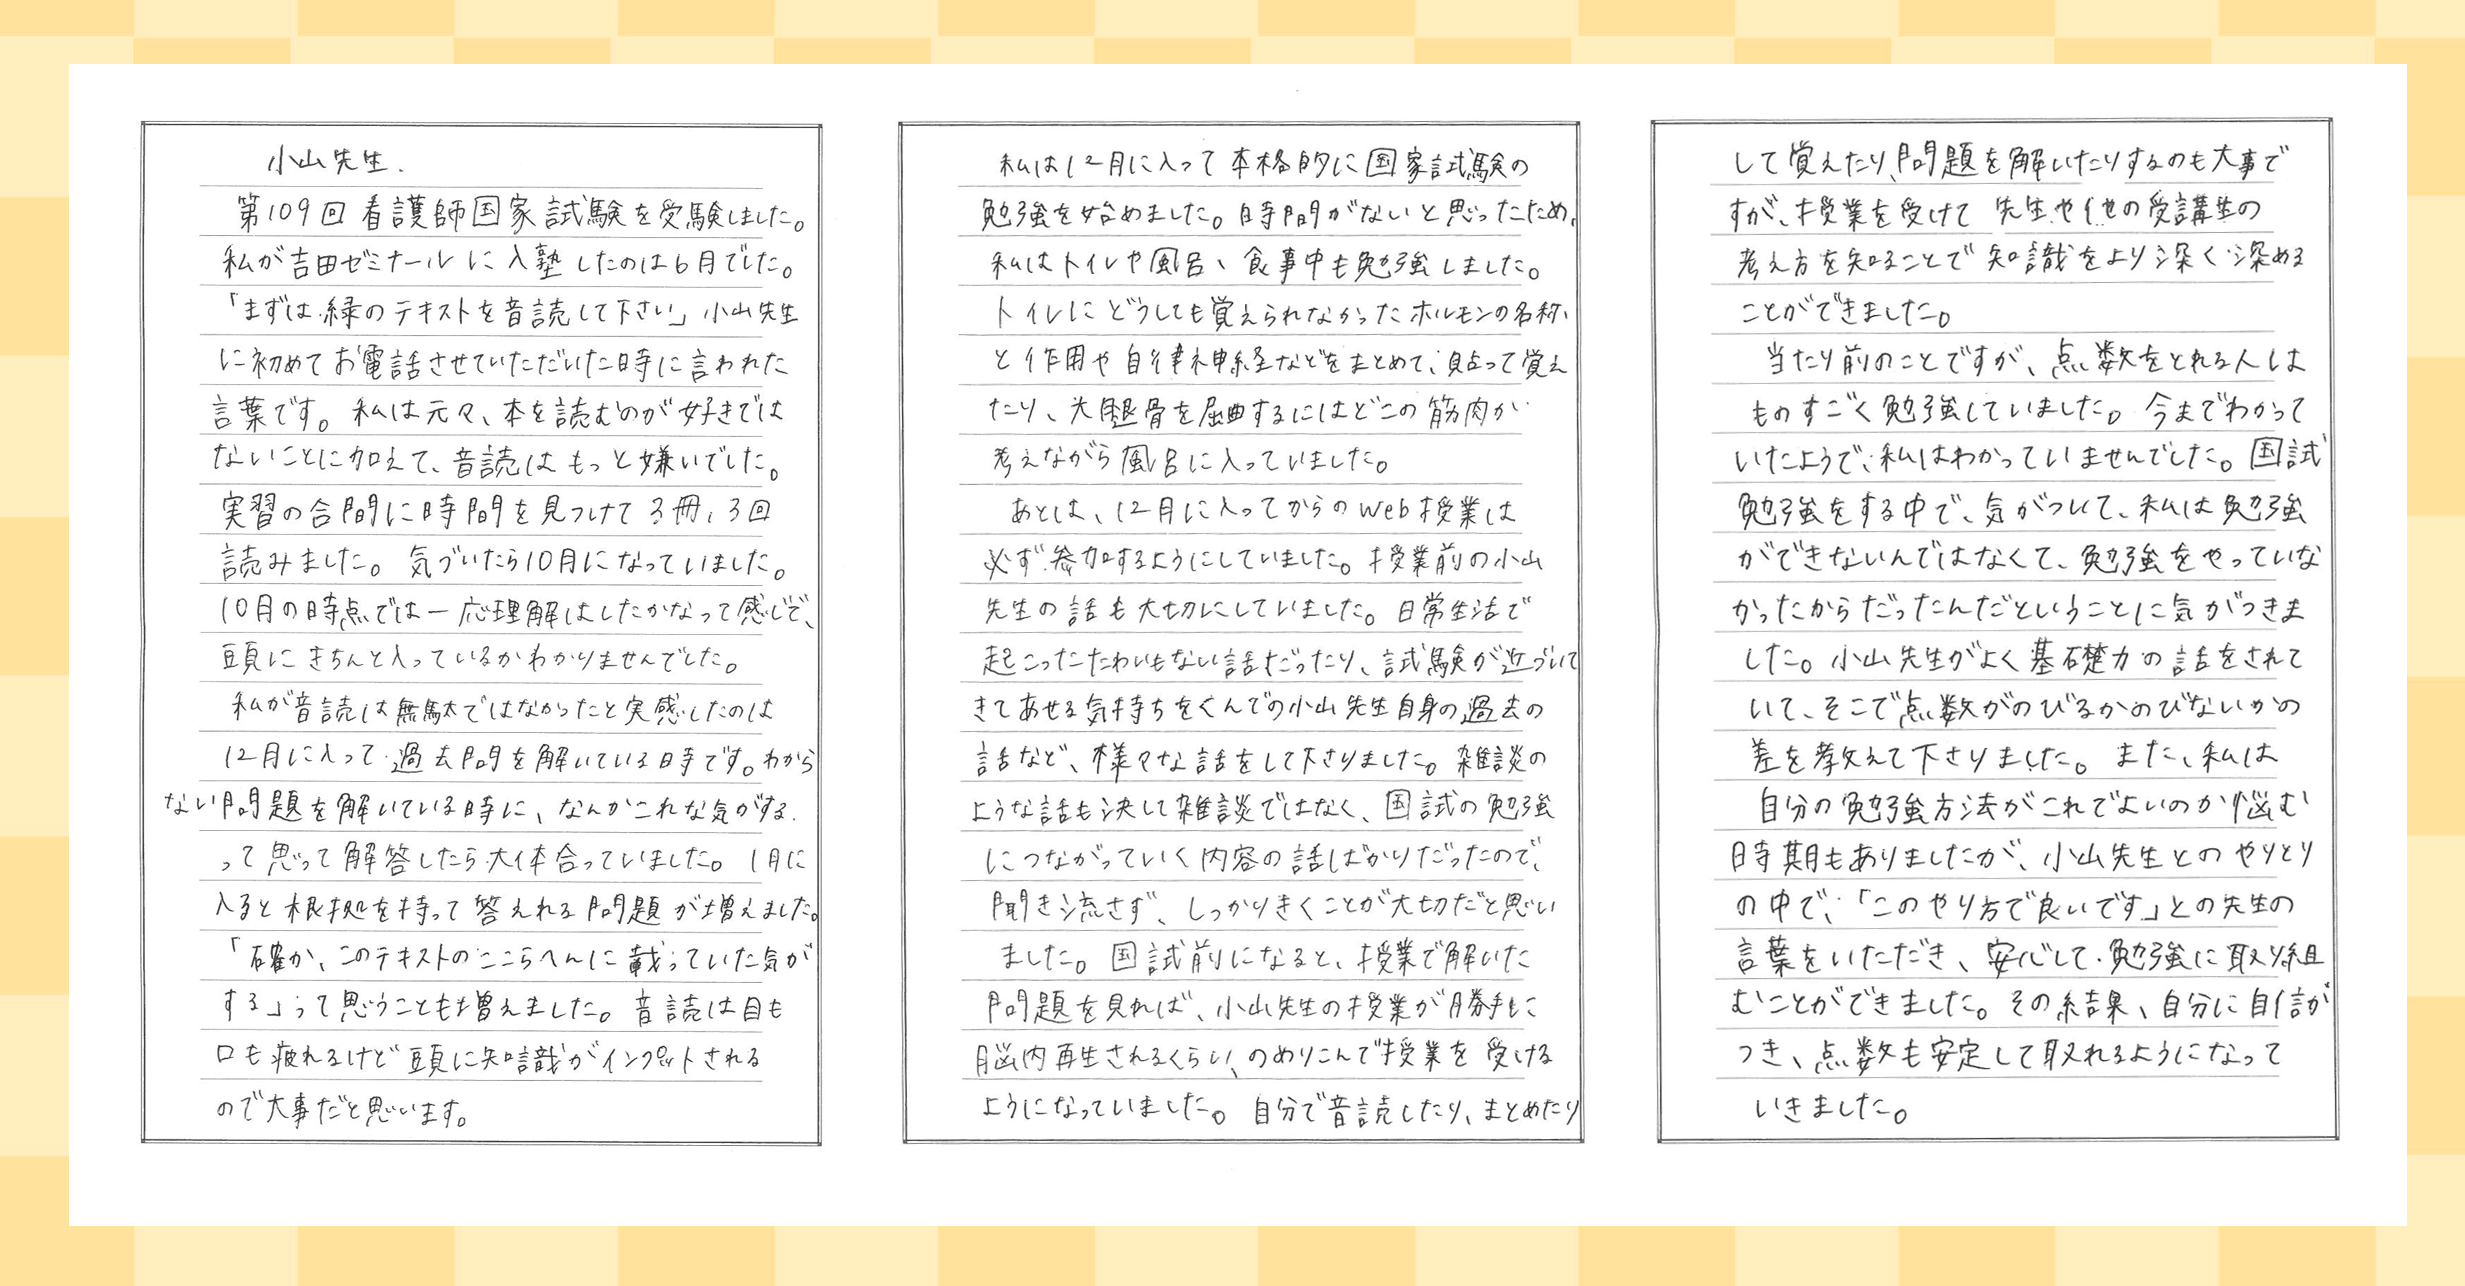 小山先生.
第109回看護師国家試験を受験しました。
私が吉田ゼミナールに入塾したのは6月でした。
「まずは緑のテキストを音読して下さい」小山先生
に初めてお電話させていただいた時に言われた
言葉です。私は元々、本を読むのが好きでは
ないことに加えて、音読はもっと嫌いでした。
実習の合間に時間を見つけて3冊、3回
読みました。気づいたら10月になっていました。
10月の時点では一応理解はしたかなって感じで、
頭にきちんと入っているかわかりませんでした。
私が音読は無駄ではなかったと実感したのは
12月に入って過去問を解いている時です。わから
ない問題を解いている時に、なんかこれな気がする.
って思って解答したら大体合っていました。1月に
入ると根拠を持って答えれる問題が増えました。
「確か、このテキストのここらへんに載っていた気が
する」って思うことも増えました。音読は目も
口も疲れるけど頭に知識がインプットされる
ので大事だと思います。
私は12月に入って本格的に国家試験の
勉強を始めました。時間がないと思ったため、
私はトイレや風呂、食事中も勉強しました。
トイレにどうしても覚えられなかったホルモンの名称、
と作用や自律神経などをまとめて、貼って覚え
たり、大腿骨を屈曲するにはどこの筋肉か
考えながら風呂に入っていました。
あとは、12月に入ってからのweb授業は
必ず参加するようにしていました。授業前の小山
先生の話も大切にしていました。日常生活で
起こったたわいもない話だったり、試験が近づいて
きてあせる気持ちをくんでの小山先生自身の過去の
話など、様々な話をして下さりました。雑談の
ような話も決して雑談ではなく、国試の勉強
につながっていく内容の話ばかりだったので、
聞き流さず、しっかりきくことが大切だと思い
ました。国試前になると、授業で解いた
問題を見れば、小山先生の授業が勝手に
脳内再生されるくらい、のめりこんで授業を受ける
ようになっていました。自分で音読したり、まとめたり
して覚えたり、問題を解いたりするのも大事で
すが、授業を受けて先生や他の受講生の
考え方を知ることで知識をより深く深める
ことができました。
当たり前のことですが、点数をとれる人は
ものすごく勉強していました。今までわかって
いたようで、私はわかっていませんでした。国試
勉強をする中で、気がついて、私は勉強
ができないんではなくて、勉強をやっていな
かったからだったんだということに気がつきま
した。小山先生がよく基礎力の話をされて
いて、そこで点数がのびるかのびないかの
差を教えて下さりました。また、私は
自分の勉強方法がこれでよいのか悩む
時期もありましたが、小山先生とのやりとり
の中で、「このやり方で良いです」との先生の
言葉をいただき、安心して勉強に取り組
むことができました。その結果、自分に自信が
つき、点数も安定して取れるようになって
いきました。